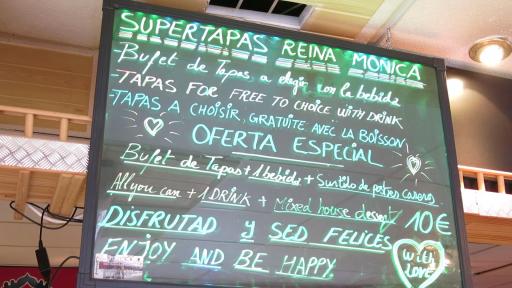 SUPERTAPAS REINA MONICA
-Bufet de Tapas, a elegir con la bebida
-TAPAS FOR FREE TO CHOICE WITH DRINK
-TAPAS A CHOISIR, GRATUITE AVEC LA BOISSON
OFERTA ESPECIAL
Bufet de Tapas + 1 bebida + Surtido de postres caseros
All you can + 1 DRINK + Mixed house dessert 10€
DISFRUTAD y SED FELICES
ENJOY AND BE HAPPY
With LOVE